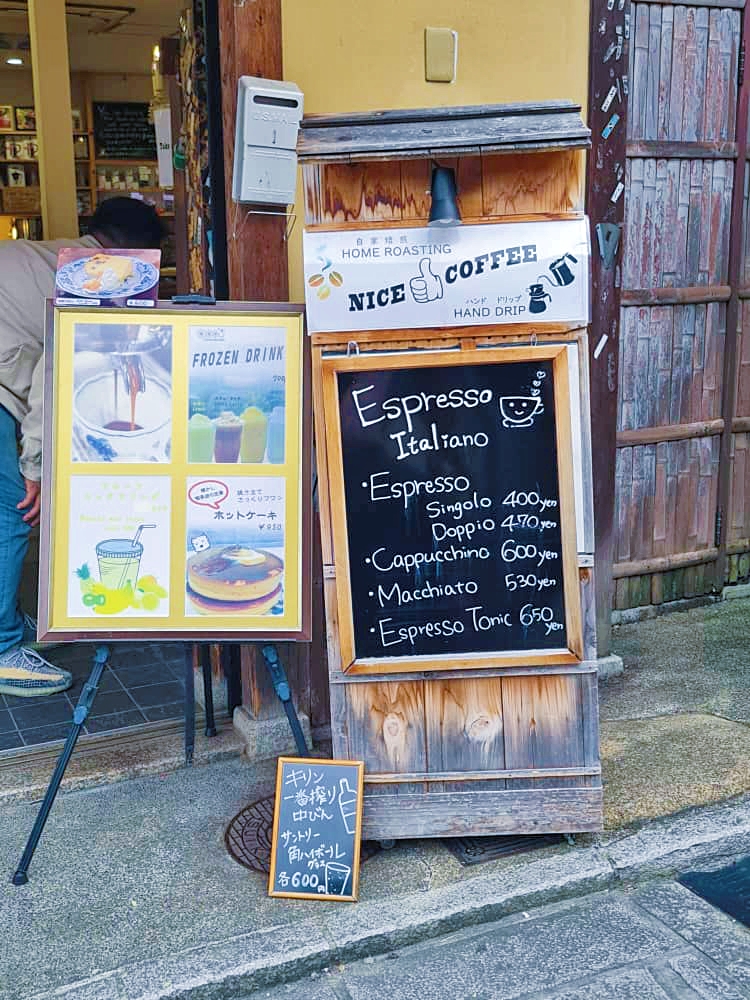 自家焙煎
HOME ROASTING
NICE COFFEE
ハンド ドリップ
HAND DRIP
Espresso
Italiano
・Espresso
Singolo 400yen
Doppio 470yen
・Cappucchino 600yen
・Macchiato 530yen
・Espresso Tonic 650yen
FROZEN DRINK
焼き立て
さっくりフワン
ホットケーキ
¥950
キリン
一番搾り
中びん
サントリー
角ハイボール
グラス
各600円